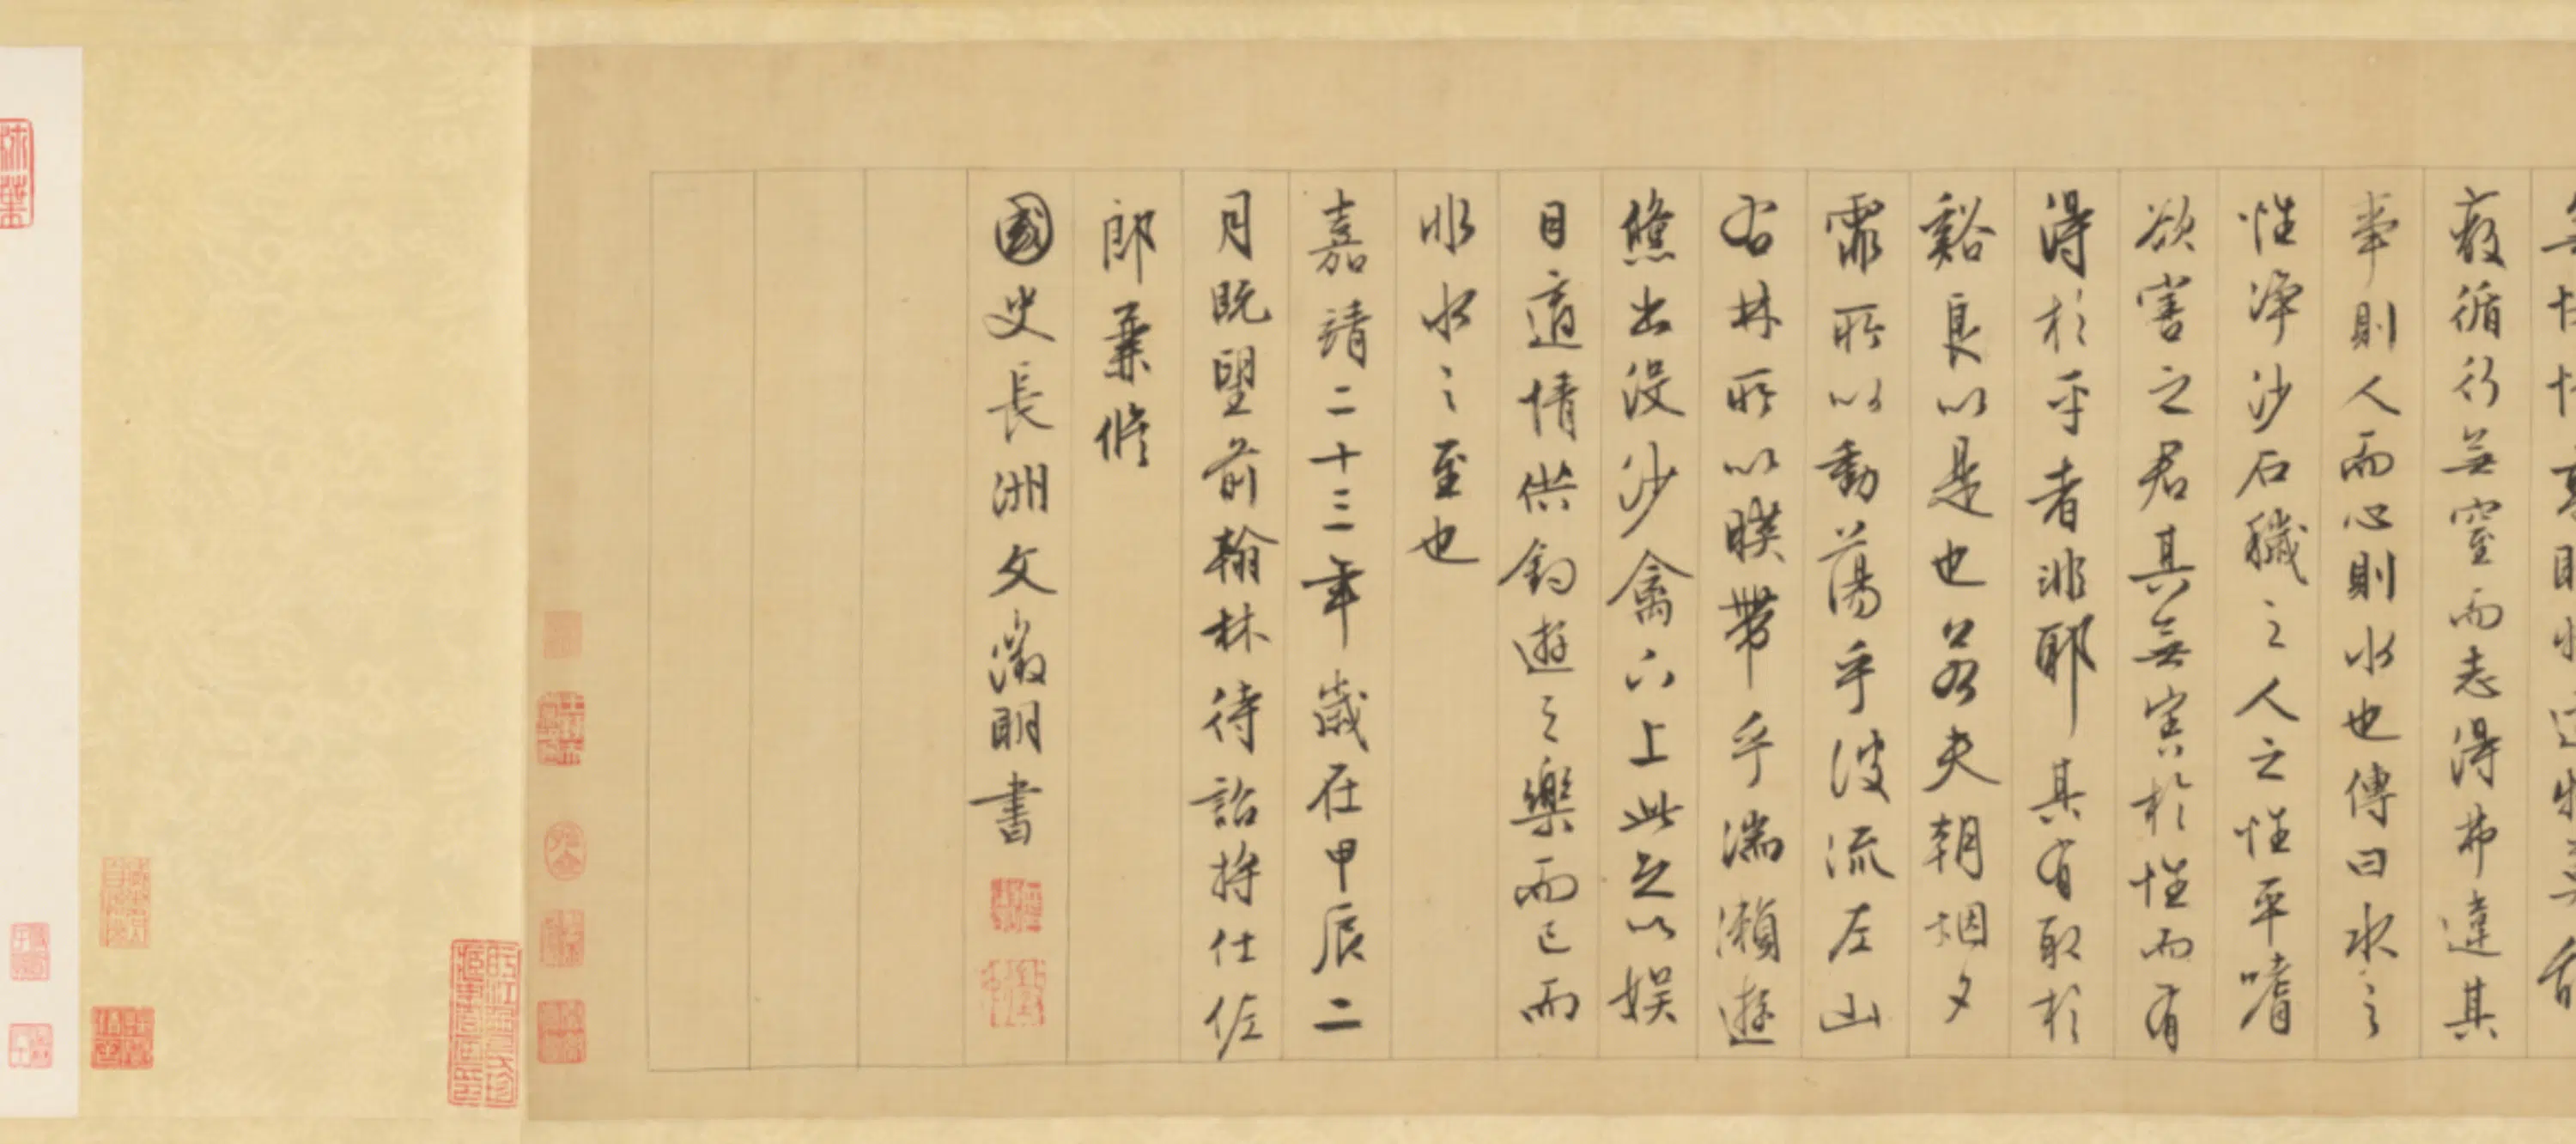 循行無窒而志得弗違其
則人而心則水也傳曰水之
性淨沙石穢之人之性平嗜
欲害之君其無害於性而有
得於平者非耶其有取於
谿良以是也若夫朝烟夕
霏所以動蕩乎波流左山
右林所以暎帶乎湍瀬遊
鯈出沒沙禽下上此足以娛
目適情供釣遊之樂而已而
非水之至也
嘉靖二十三年歲在甲辰二
月既望前翰林待詔將仕佐
郎兼脩
國史長洲文徵明書